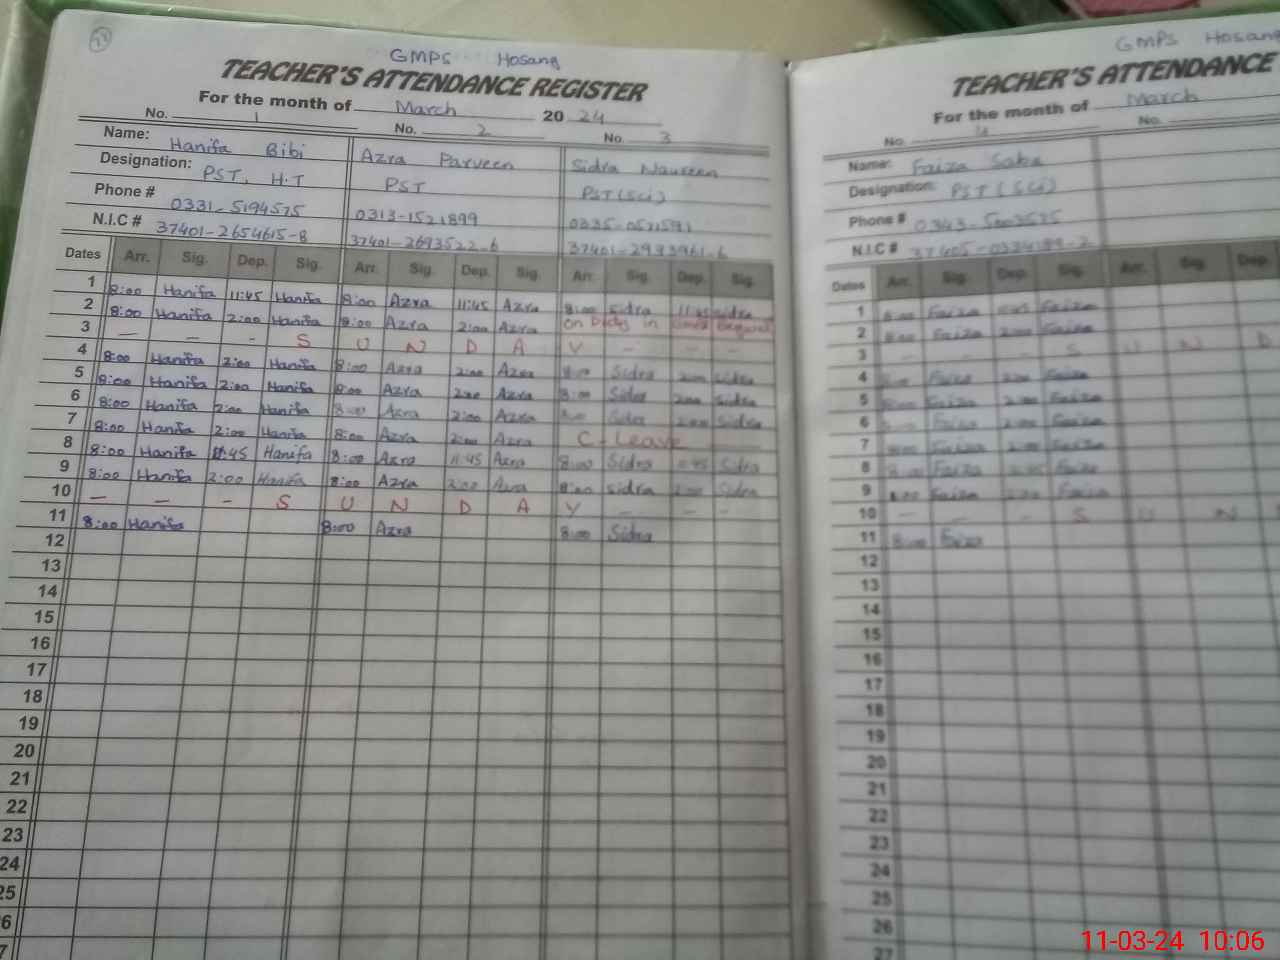 GMPS Hosang
TEACHER'S ATTENDANCE REGISTER
For the month of March 2024
No. 1 No. 2 No. 3
Name: Hanifa Bibi Azra Parveen Sidra Naureen
Designation: PST, H.T PST PST (Sci)
Phone # 0331-5194575 0313-1521899 0335-0521591
N.I.C # 37401-2654615-8 37401-2693522-6 37401-2993961-6
Dates Arr. Sig. Dep. Sig. Arr. Sig. Dep. Sig. Arr. Sig. Dep. Sig.
1 8:00 Hanifa 11:45 Hanifa 8:00 Azra 11:45 Azra 8:00 Sidra 11:45 Sidra
2 8:00 Hanifa 2:00 Hanifa 8:00 Azra 2:00 Azra on in
3 — — - S U N D A Y - - -
4 8:00 Hanifa 2:00 Hanifa 8:00 Azra 2:00 Azra 8:00 Sidra 2:00 Sidra
5 8:00 Hanifa 2:00 Hanifa 8:00 Azra 2:00 Azra 8:00 Sidra 2:00 Sidra
6 8:00 Hanifa 2:00 Hanifa 8:00 Azra 2:00 Azra 8:00 Sidra 2:00 Sidra
7 8:00 Hanifa 2:00 Hanifa 8:00 Azra 2:00 Azra C-Leave
8 8:00 Hanifa 11:45 Hanifa 8:00 Azra 11:45 Azra 8:00 Sidra 11:45 Sidra
9 8:00 Hanifa 2:00 Hanifa 8:00 Azra 2:00 Azra 8:00 Sidra 2:00 Sidra
10 — — - S U N D A Y - - -
11 8:00 Hanifa 8:00 Azra 8:00 Sidra
12
13
14
15
16
17
18
19
20
21
22
23
24
25
6
7
GMPS Hosang
TEACHER'S ATTENDANCE
For the month of March
No. 4 No.
Name: Faiza Saba
Designation: PST (Sci)
Phone # 0343-
N.I.C # 37405-
Dates Arr. Sig. Dep. Sig. Arr. Sig. Dep.
1 8:00 Faiza 11:45 Faiza
2 8:00 Faiza 2:00 Faiza
3 S U N D
4 8:00 Faiza 2:00 Faiza
5 8:00 Faiza 2:00 Faiza
6 8:00 Faiza 2:00 Faiza
7 8:00 Faiza 2:00 Faiza
8 8:00 Faiza 11:45 Faiza
9 8:00 Faiza 2:00 Faiza
10 — — - S U N D
11 8:00 Faiza
12
13
14
15
16
17
18
19
20
21
22
23
24
25
26
27
11-03-24 10:06